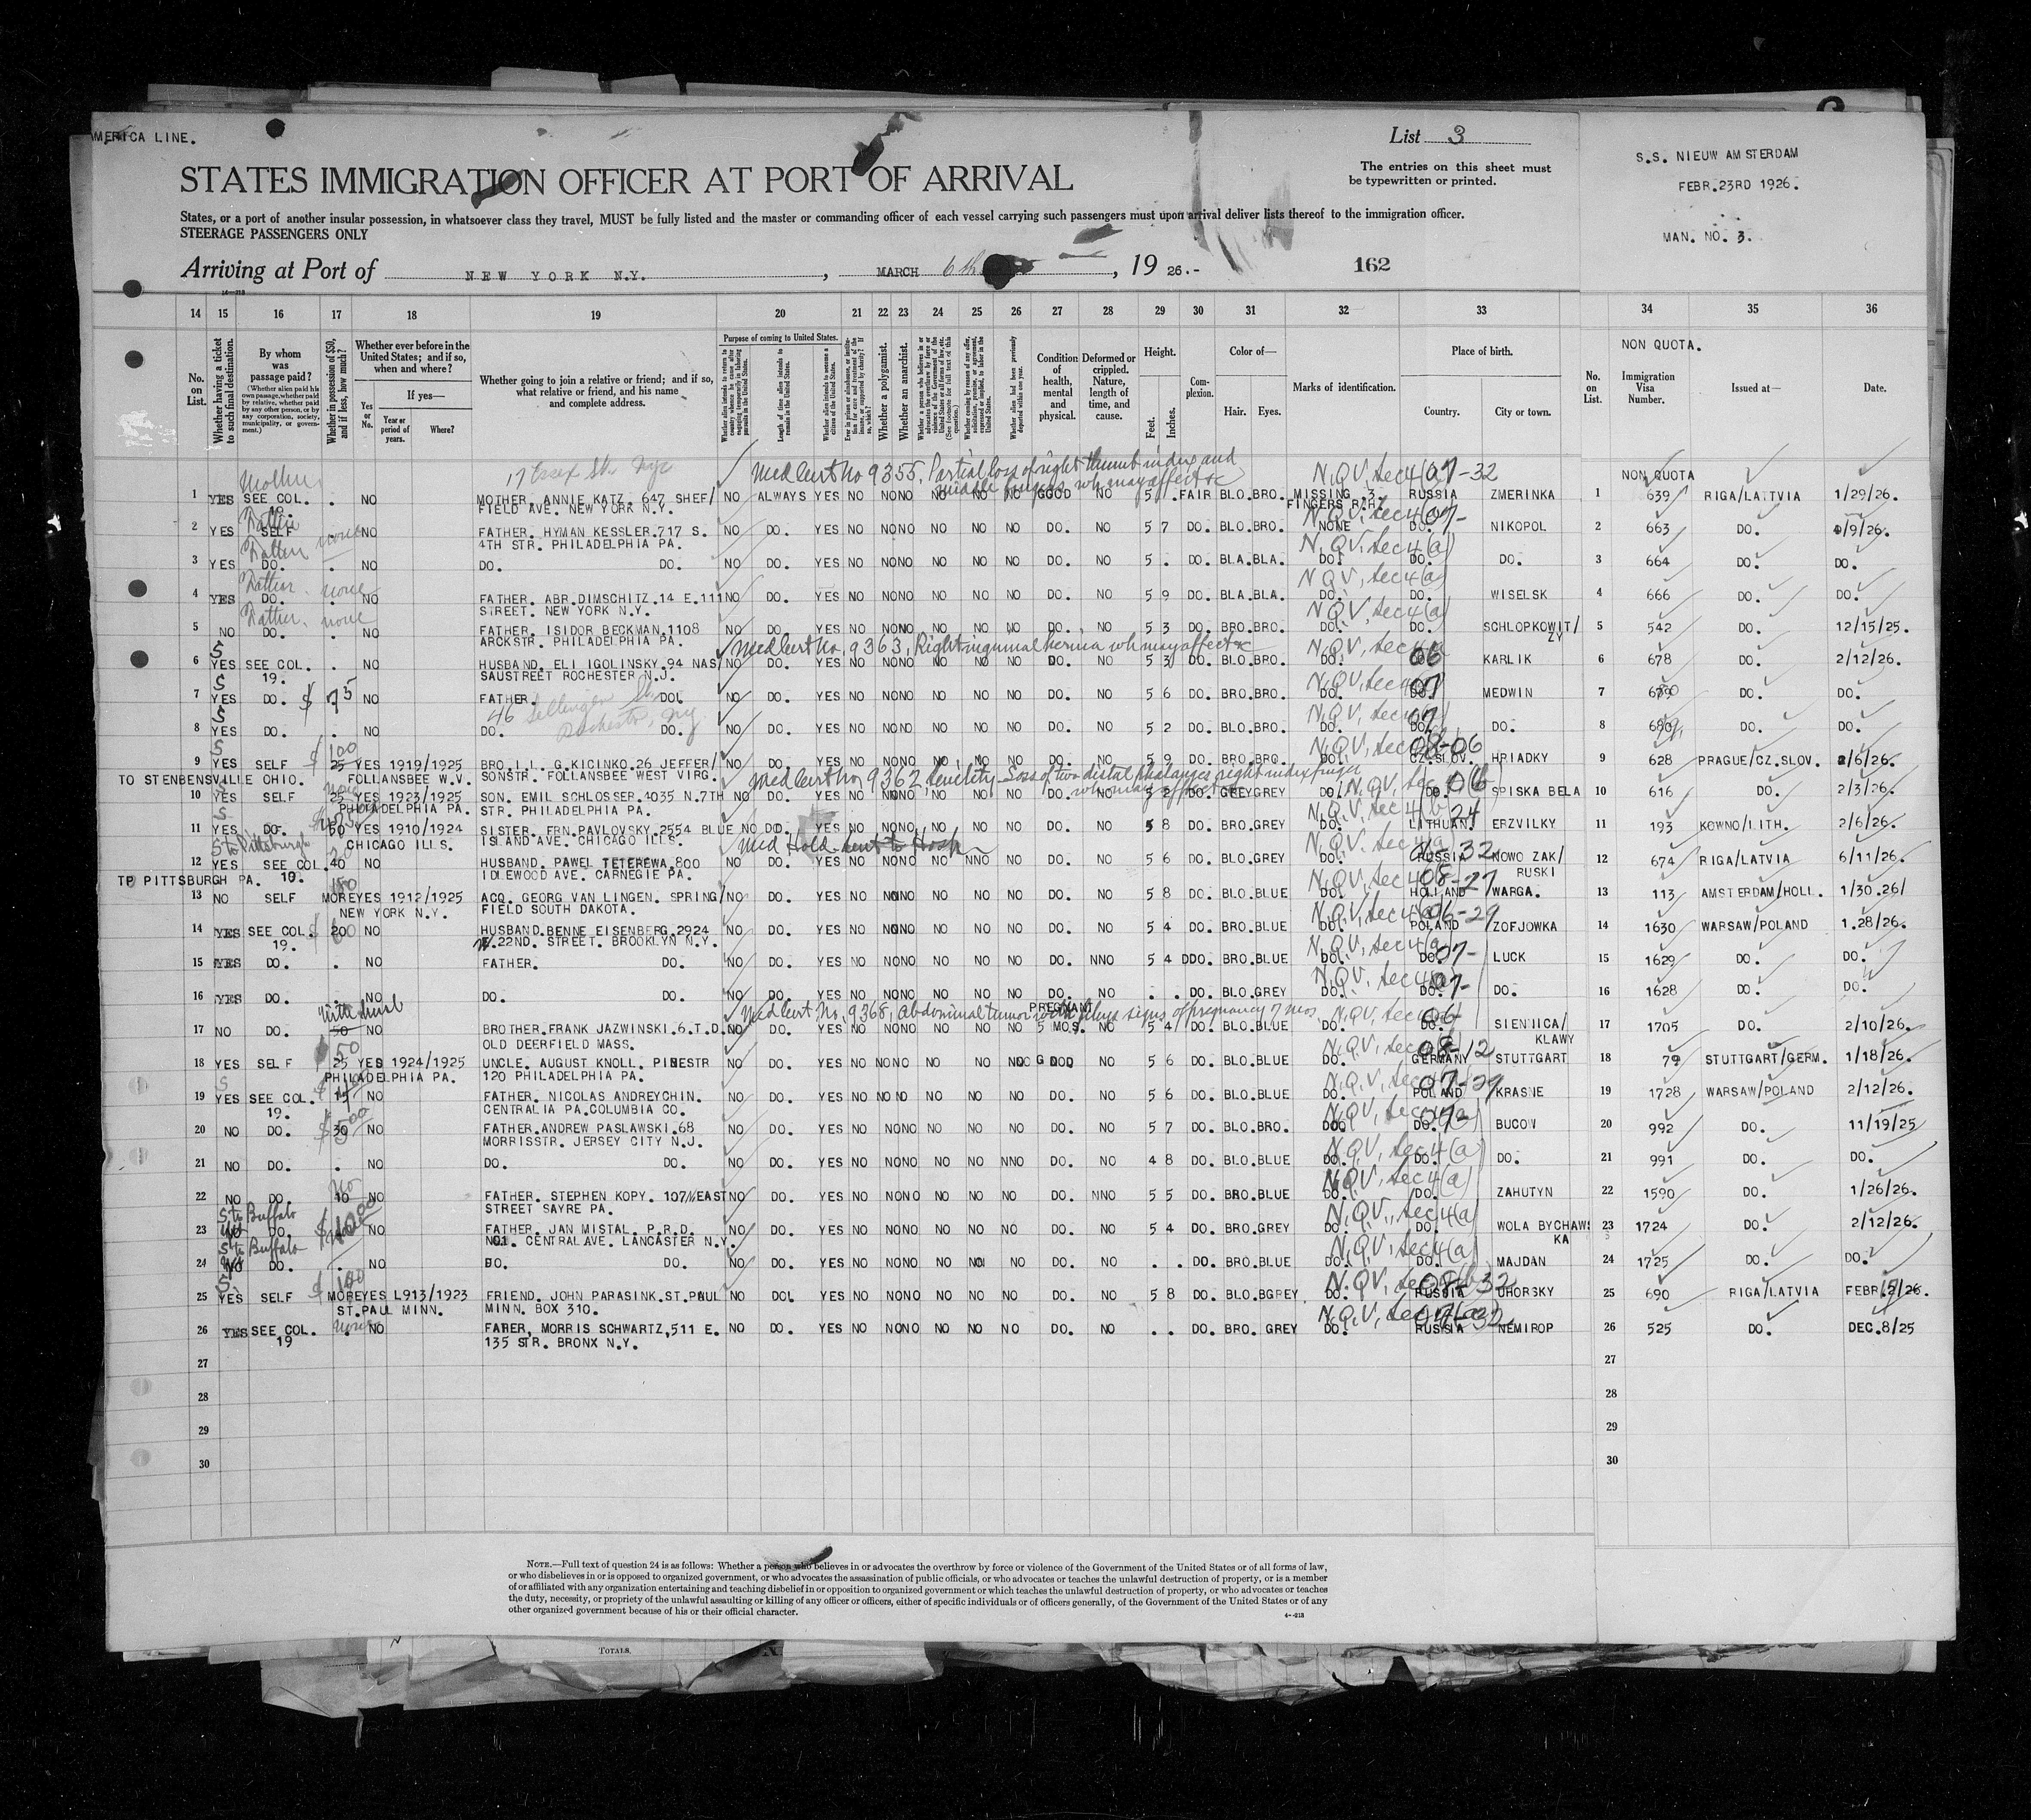 AMERICA LINE.
List 3
The entries on this sheet must
be typewritten or printed.
S.S. NIEUW AMSTERDAM
FEBR.23RD 1926.
MAN. NO. 3.
STATES IMMIGRATION OFFICER AT PORT OF ARRIVAL
States, or a port of another insular possession, in whatsoever class they travel, MUST be fully listed and the master or commanding officer of each vessel carrying such passengers must upon arrival deliver lists thereof to the immigration officer.
STEERAGE PASSENGERS ONLY
Arriving at Port of NEW YORK N.Y. , MARCH 6th , 19 26.-
162
14 15 16 17 18 19 20 21 22 23 24 25 26 27 28 29 30 31 32 33 34 35 36
No. on List.
Whether having a ticket to such final destination.
By whom was passage paid?
(Whether alien paid his own passage, whether paid by relative, whether paid by any other person, or by any corporation, society, municipality, or government.)
Whether in possession of $50, and if less, how much?
Whether ever before in the United States; and if so, when and where?
Yes or No.
If yes—
Year or period of years.
Where?
Whether going to join a relative or friend; and if so, what relative or friend, and his name and complete address.
Purpose of coming to United States.
Length of time alien intends to remain in the United States.
Whether alien intends to become a citizen of the United States.
Whether a polygamist.
Whether an anarchist.
Condition of health, mental and physical.
Deformed or crippled. Nature, length of time, and cause.
Height.
Feet.
Inches.
Complexion.
Color of—
Hair.
Eyes.
Marks of identification.
Place of birth.
Country.
City or town.
No. on List.
NON QUOTA.
Immigration Visa Number.
Issued at—
Date.
17 Essex St. NYC
Med Cert No 9355, Partial loss of right thumb index and
middle fingers wh may affect &c
N.Q.V, Sec 4(a) 07-32
NON QUOTA
Mother
1 YES SEE COL. . NO MOTHER. ANNIE KATZ. 647 SHEF/ NO ALWAYS YES NO NO NO NO NO NO GOOD NO 5 . FAIR BLO. BRO. MISSING .3. RUSSIA ZMERINKA 1 639 RIGA/LATTVIA 1/29/26.
19. FIELD AVE. NEW YORK N.Y. FINGERS R.H.
Father
2 YES SELF . NO FATHER. HYMAN KESSLER.717 S. NO DO. YES NO NO NO NO NO NO DO. NO 5 7 DO. BLO. BRO. NONE DO. NIKOPOL 2 663 DO. /9/26.
4TH STR. PHILADELPHIA PA.
Father none
3 YES DO. . NO DO. DO. NO DO. YES NO NO NO NO NO NO DO. NO 5 . DO. BLA. BLA. DO. DO. DO. 3 664 DO. DO.
Father none
4 YES DO. . NO FATHER. ABR.DIMSCHITZ.14 E.111 NO DO. YES NO NO NO NO NO NO DO. NO 5 9 DO. BLA. BLA. DO. DO. WISELSK 4 666 DO. DO.
STREET. NEW YORK N.Y.
Father none
5 NO DO. . NO FATHER. ISIDOR BECKMAN.1108 NO DO. YES NO NO NO NO NO NO DO. NO 5 3 DO. BRO. BRO. DO. DO. SCHLOPKOWIT/ 5 542 DO. 12/15/25.
ARCKSTR. PHILADELPHIA PA. ZY
Med Cert No. 9363, Right inguinal hernia wh may affect &c
6 YES SEE COL. . NO HUSBAND. ELI IGOLINSKY.94 NAS/ NO DO. YES NO NO NO NO NO NO DO. NO 5 3 DO. BLO. BRO. DO. 06 KARLIK 6 678 DO. 2/12/26.
19. SAUSTREET ROCHESTER N.J.
7 YES DO. $ 75 NO FATHER. DO. NO DO. YES NO NO NO NO NO NO DO. NO 5 6 DO. BRO. BRO. DO. 07 MEDWIN 7 679 DO. DO.
46
Rochester, NY
8 YES DO. . NO DO. DO. NO DO. YES NO NO NO NO NO NO DO. NO 5 2 DO. BLO. BRO. DO. 07 DO. 8 680 DO. DO.
$100
9 YES SELF 25 YES 1919/1925 BRO.I.L. G.KICINKO.26 JEFFER/ NO DO. YES NO NO NO NO NO NO DO. NO 5 9 DO. BRO. BRO. DO. CZ.SLOV. HRIADKY 9 628 PRAGUE/CZ.SLOV. 2/6/26.
TO STENBENSVILLE OHIO. FOLLANSBEE W.V. SONSTR. FOLLANSBEE WEST VIRG.
Med Cert No, 9362 Senility-Loss of two distal phalanges right index finger
wh may affect &c
10 YES SELF 25 YES 1923/1925 SON. EMIL SCHLOSSER.4035 N.7TH NO DO. YES NO NO NO NO NO NO DO. NO 5 2 DO. GREY GREY DO. DO. SPISKA BELA 10 616 DO. 2/3/26.
PHILADELPHIA PA. STR. PHILADELPHIA PA.
11 YES DO. 50 YES 1910/1924 SISTER. FRN.PAVLOVSKY.2554 BLUE NO DO. YES NO NO NO NO NO NO DO. NO 5 8 DO. BRO. GREY DO. LITHUAN. ERZVILKY 11 193 KOWNO/LITH. 2/6/26.
S to Pittsburgh CHICAGO ILLS. ISLAND AVE. CHICAGO ILLS. Med Hold - sent to Hosp
12 YES SEE COL. 40 NO HUSBAND. PAWEL TETEREWA.800 NO DO. YES NO NO NO NO NNO NO DO. NO 5 6 DO. BLO. GREY DO. RUSSIA NOWO ZAK/ 12 674 RIGA/LATVIA 6/11/26.
TP PITTSBURGH PA. 19. IDLEWOOD AVE. CARNEGIE PA. RUSKI
13 NO SELF MORE YES 1912/1925 ACQ. GEORG VAN LINGEN. SPRING/ NO DO. YES NO NO NO NO NO NO DO. NO 5 8 DO. BLO. BLUE DO. HOLLAND WARGA. 13 113 AMSTERDAM/HOLL. 1/30.26/
NEW YORK N.Y. FIELD SOUTH DAKOTA.
14 YES SEE COL. 20 NO HUSBAND.BENNE EISENBERG.2924 NO DO. YES NO NO NO NO NO NO DO. NO 5 4 DO. BRO. BLUE DO. POLAND ZOFJOWKA 14 1630 WARSAW/POLAND 1.28/26.
19. W.22ND. STREET. BROOKLYN N.Y.
15 YES DO. . NO FATHER. DO. NO DO. YES NO NO NO NO NO NO DO. NNO 5 4 DDO. BRO. BLUE DO. DO. LUCK 15 1629 DO. DO.
16 YES DO. . NO DO. DO. NO DO. YES NO NO NO NO NO NO DO. NO . . DO. BLO. GREY DO. DO. DO. 16 1628 DO. DO.
Med Cert No, 9368, abdominal tumor with plus signs of pregnancy 7 mos
PREGNANT
17 NO DO. 50 NO BROTHER.FRANK JAZWINSKI.6.T.D. NO DO. YES NO NO NO NO NO NO 5 MOS. NO 5 4 DO. BLO. BLUE DO. DO. SIENIICA/ 17 1705 DO. 2/10/26.
OLD DEERFIELD MASS. KLAWY
50
18 YES SELF 25 YES 1924/1925 UNCLE. AUGUST KNOLL. PINESTR NO DO. YES NO NO NO NO NO NO GOOD NO 5 6 DO. BLO. BLUE DO. GERMANY STUTTGART 18 79 STUTTGART/GERM. 1/18/26.
PHILADELPHIA PA. 120 PHILADELPHIA PA.
19 YES SEE COL. 15 NO FATHER. NICOLAS ANDREYCHIN. NO DO. YES NO NO NO NO NO NO DO. NO 5 6 DO. BLO. BLUE DO. POLAND KRASNE 19 1728 WARSAW/POLAND 2/12/26.
19. CENTRALIA PA.COLUMBIA CO.
20 NO DO. 30 NO FATHER.ANDREW PASLAWSKI.68 NO DO. YES NO NO NO NO NO NO DO. NO 5 7 DO. BLO. BRO. DO. DO. BUCOW 20 992 DO. 11/19/25
MORRISSTR. JERSEY CITY N.J.
21 NO DO. . NO DO. DO. NO DO. YES NO NO NO NO NO NNO DO. NO 4 8 DO. BLO. BLUE DO. DO. DO. 21 991 DO. DO.
22 NO DO. 10 NO FATHER. STEPHEN KOPY. 107 EAST NO DO. YES NO NO NO NO NO NO DO. NNO 5 5 DO. BRO. BLUE DO. DO. ZAHUTYN 22 1590 DO. 1/26/26.
STREET SAYRE PA.
S to Buffalo
23 NO DO. NO FATHER. JAN MISTAL. P.R.D. NO DO. YES NO NO NO NO NO NO DO. NO 5 4 DO. BRO. GREY DO. DO. WOLA BYCHAWS 23 1724 DO. 2/12/26.
S to Buffalo NO1. CENTRALAVE. LANCASTER N.Y. KA
24 NO DO. . NO DO. DO. NO DO. YES NO NO NO NO NO NO DO. NO . . DO. BRO. BLUE DO. DO. MAJDAN 24 1725 DO. DO.
$100
25 YES SELF MORE YES L913/1923 FRIEND. JOHN PARASINK.ST.PAUL NO DO. YES NO NO NO NO NO NO DO. NO 5 8 DO. BLO. BGREY DO. RUSSIA UHORSKY 25 690 RIGA/LATVIA FEBR.5/26.
ST.PAUL MINN. MINN. BOX 310.
26 YES SEE COL. . NO FATHER, MORRIS SCHWARTZ,511 E. NO DO. YES NO NO NO NO NO NO DO. NO . . DO. BRO. GREY DO. RUSSIA NEMIROP 26 525 DO. DEC.8/25
19 135 STR. BRONX N.Y.
27 27
28 28
29 29
30 30
NOTE.—Full text of question 24 is as follows: Whether a person who believes in or advocates the overthrow by force or violence of the Government of the United States or of all forms of law,
or who disbelieves in or is opposed to organized government, or who advocates the assassination of public officials, or who advocates or teaches the unlawful destruction of property, or is a member
of or affiliated with any organization entertaining and teaching disbelief in or opposition to organized government or which teaches the unlawful destruction of property, or who advocates or teaches
the duty, necessity, or propriety of the unlawful assaulting or killing of any officer or officers, either of specific individuals or of officers generally, of the Government of the United States or of any
other organized government because of his or their official character.
TOTALS.